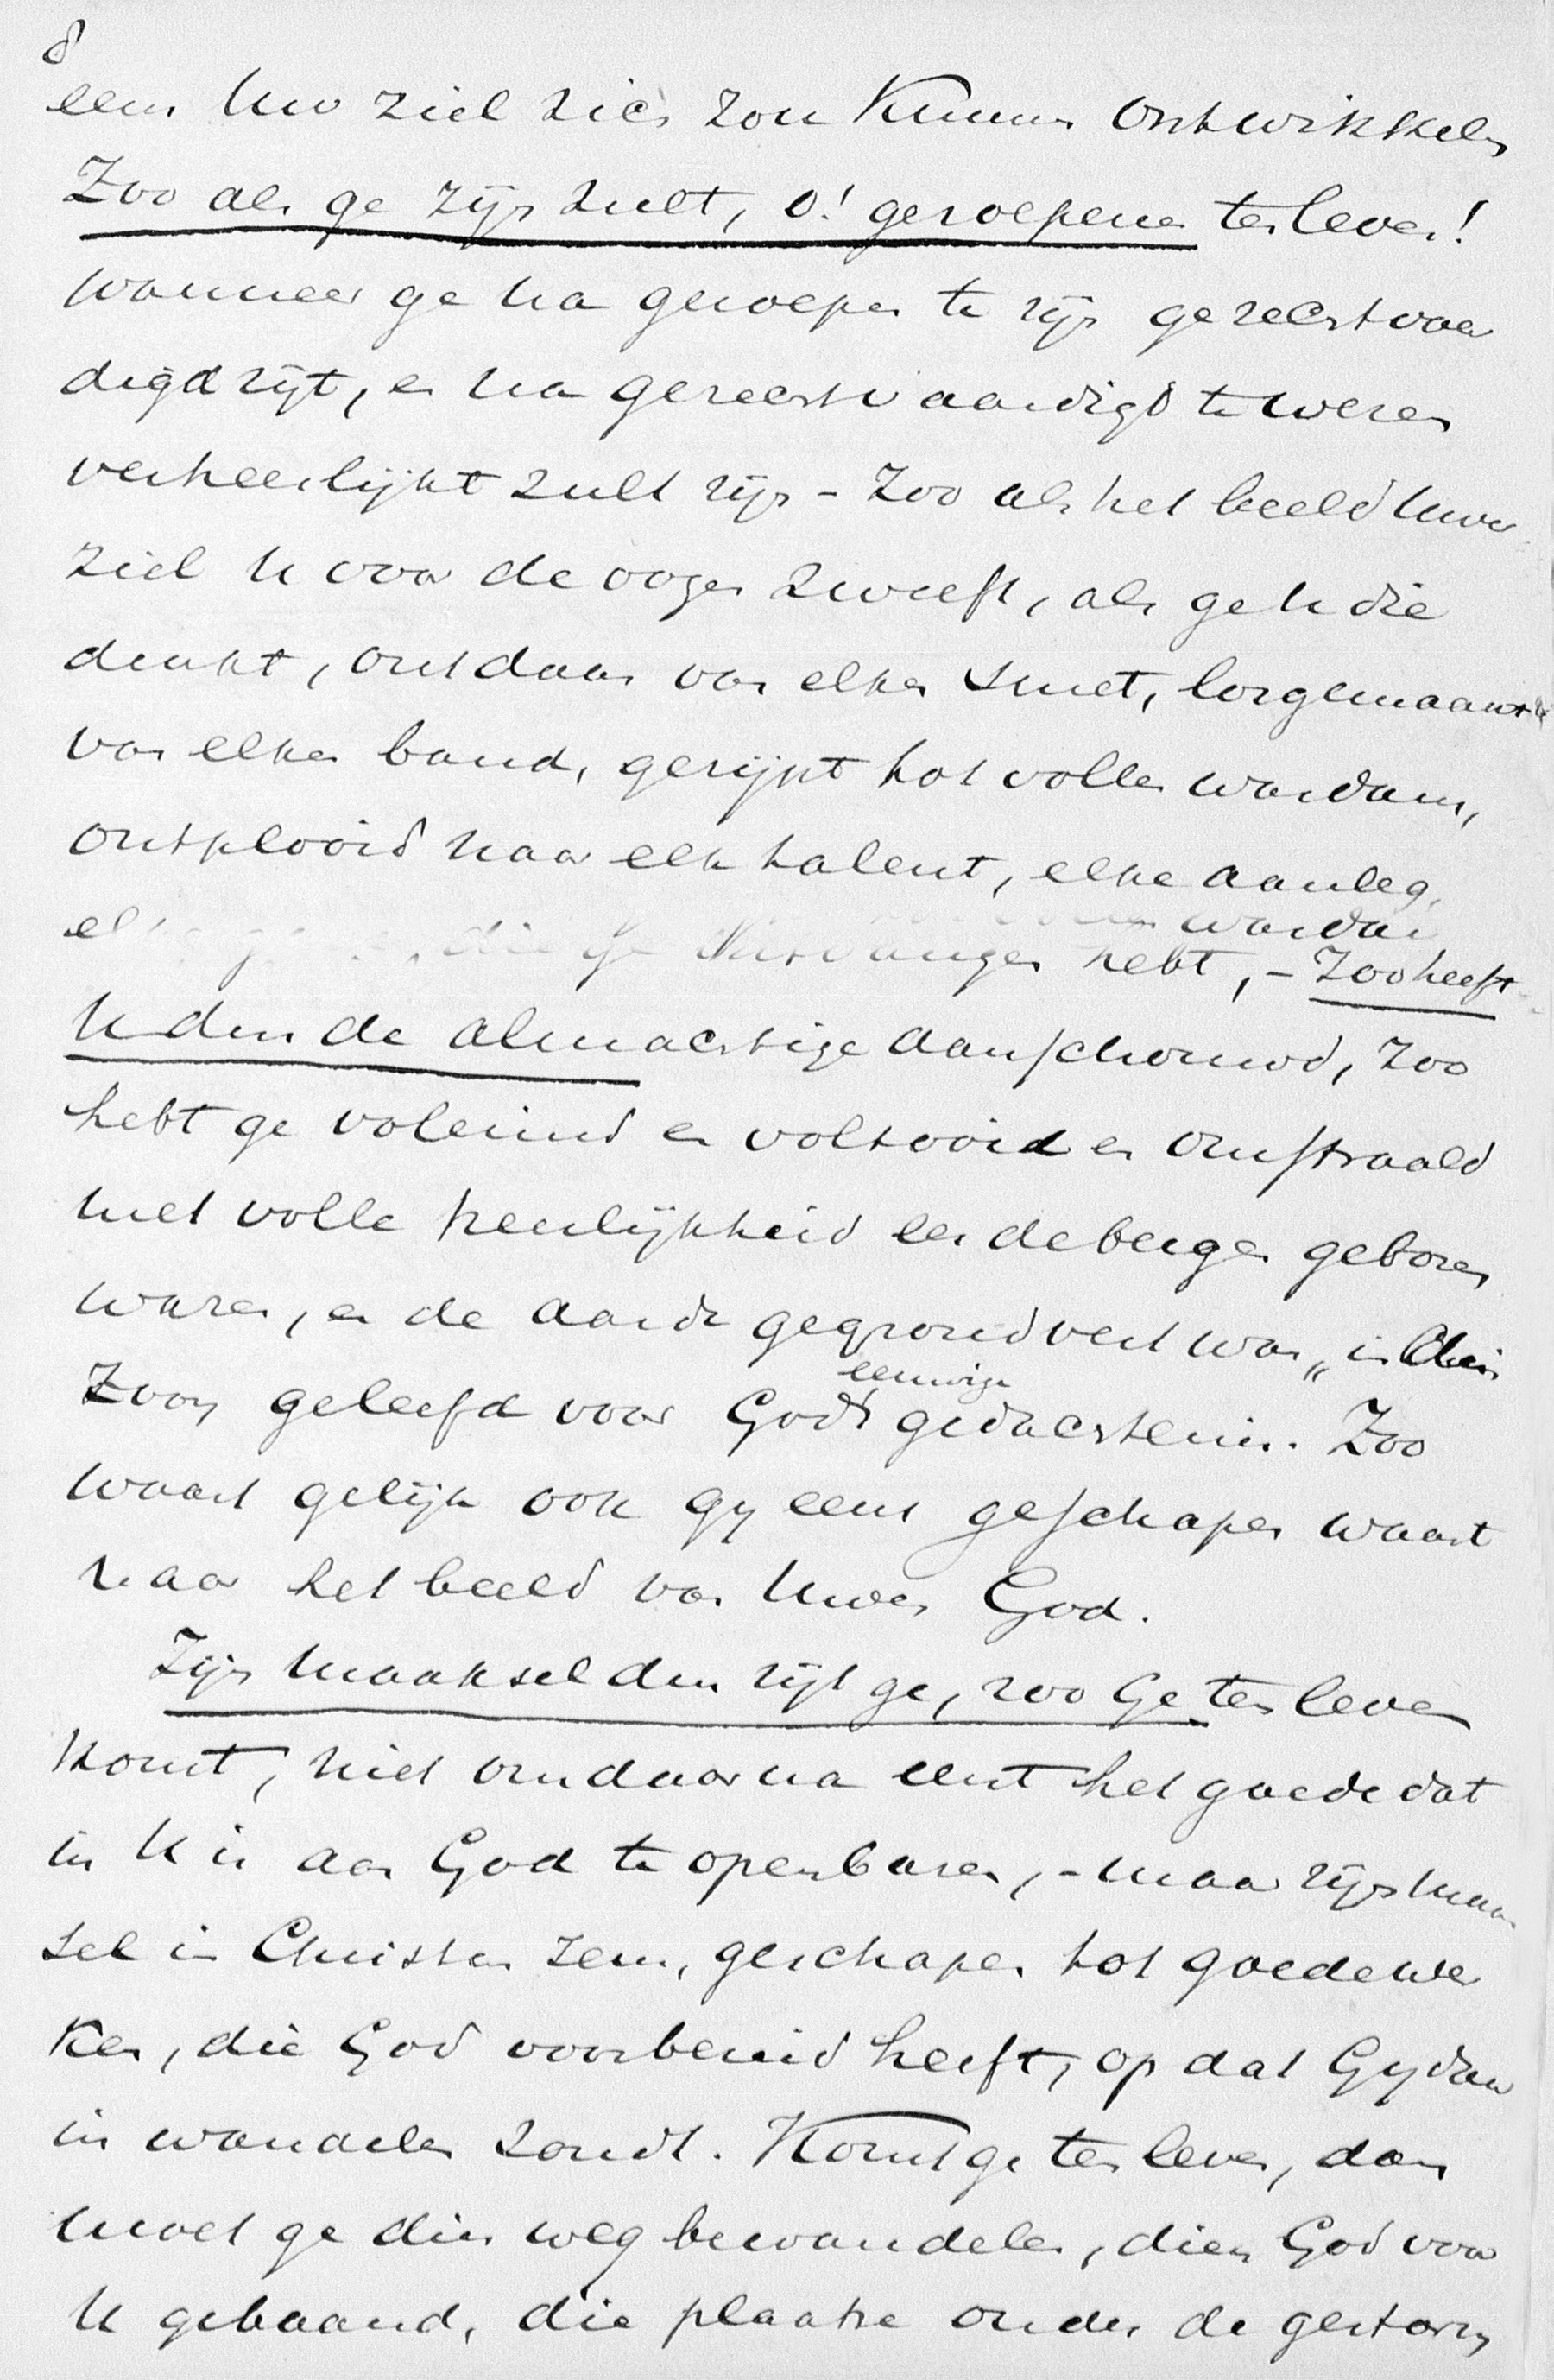 8
eens Uw ziel zich zou Kunnen ontwikkelen
Zoo als ge zijn zult, o! geroepene ten leven!
wanneer ge na geroepen te zijn gerechtvaar
digd zijt, en na gerechtvaardigd te wezen
verheerlijkt zult zijn - Zoo als het beeld Uwer
ziel U voor de oogen zweeft, als ge U die
denkt, ontdaan van elke smet, losgemaakt
van elken band, gerijpt tot vollen wasdom,
ontplooid naar elk talent, elke aanleg,
waarvan
die ge ontvangen hebt, - Zoo heeft
U den de almachtige aanschouwd, Zoo
hebt ge voleind en voltooid en omstraald
met volle heerlijkheid eer de bergen geboren
waren, en de aarde gegrondvest was „in
Zoon geleefd voor Gods eeuwige gedachtenis. Zoo
waart gelijk ook gy eens geschapen waart
naar het beeld van Uwen God.
Zijn maaksel dan zijt ge, zoo Ge ten leven
komt, niet om daarna eerst het goede dat
in U is aan God te openbaren, - maar zijn maak
sel in Christus Jezus, geschapen tot goede wer
ken, die God voorbereid heeft, op dat Gy daar
in wandelen zoudt. Komt ge ten leven, dan
moet ge dien weg bewandelen, dien God voor
U gebaand, die plaatse onder de